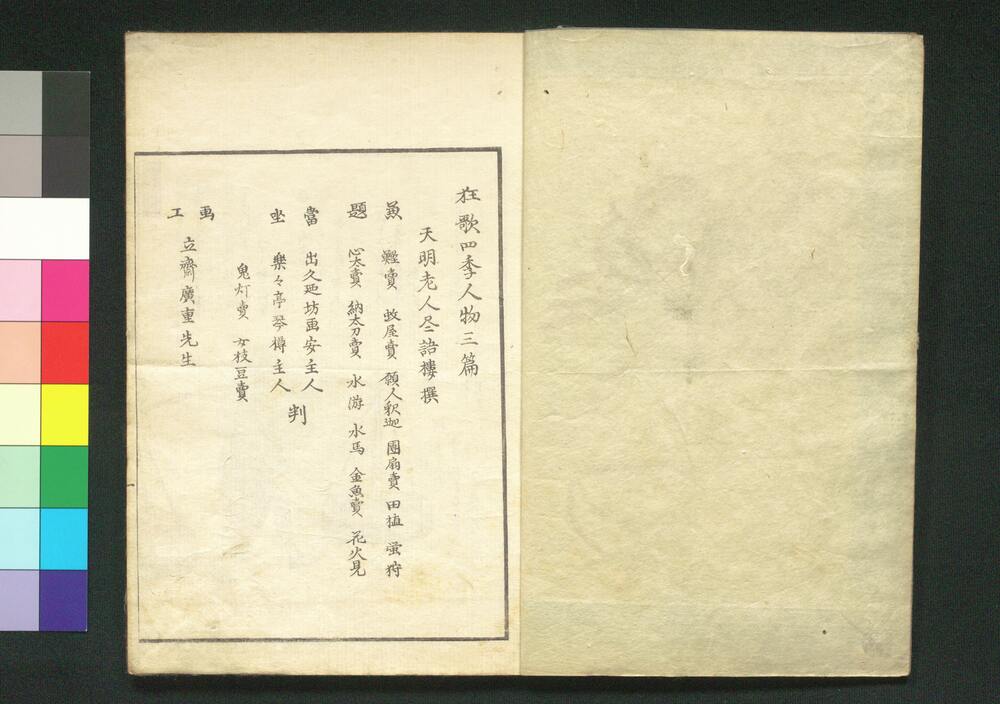 狂歌四季人物三篇
天明老人尽語樓撰
兼題
鰹賣 蚊屋賣 願人釈迦 團扇賣 田植 蛍狩
心太賣 納太刀賣 水游 水馬 金魚賣 花火見
當坐
出久廼坊画安主人
樂々亭琴樽主人
判
鬼灯賣 女枝豆賣
画工
立齋廣重先生